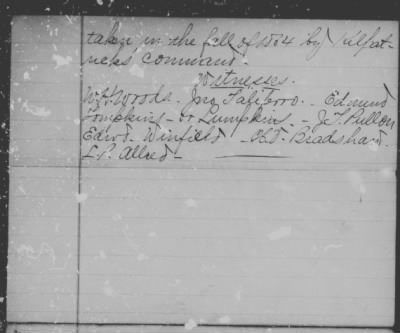 taken in the fall of 1864 by Kilpat-
ricks Command.
Witnesses.
W. H. Woods. Jno Taliferro. Edmund
Tompkins - or Lumpkins. - J. T. Pullon
Edwd. Winfield - Bradshaw.
L. P. Allred -